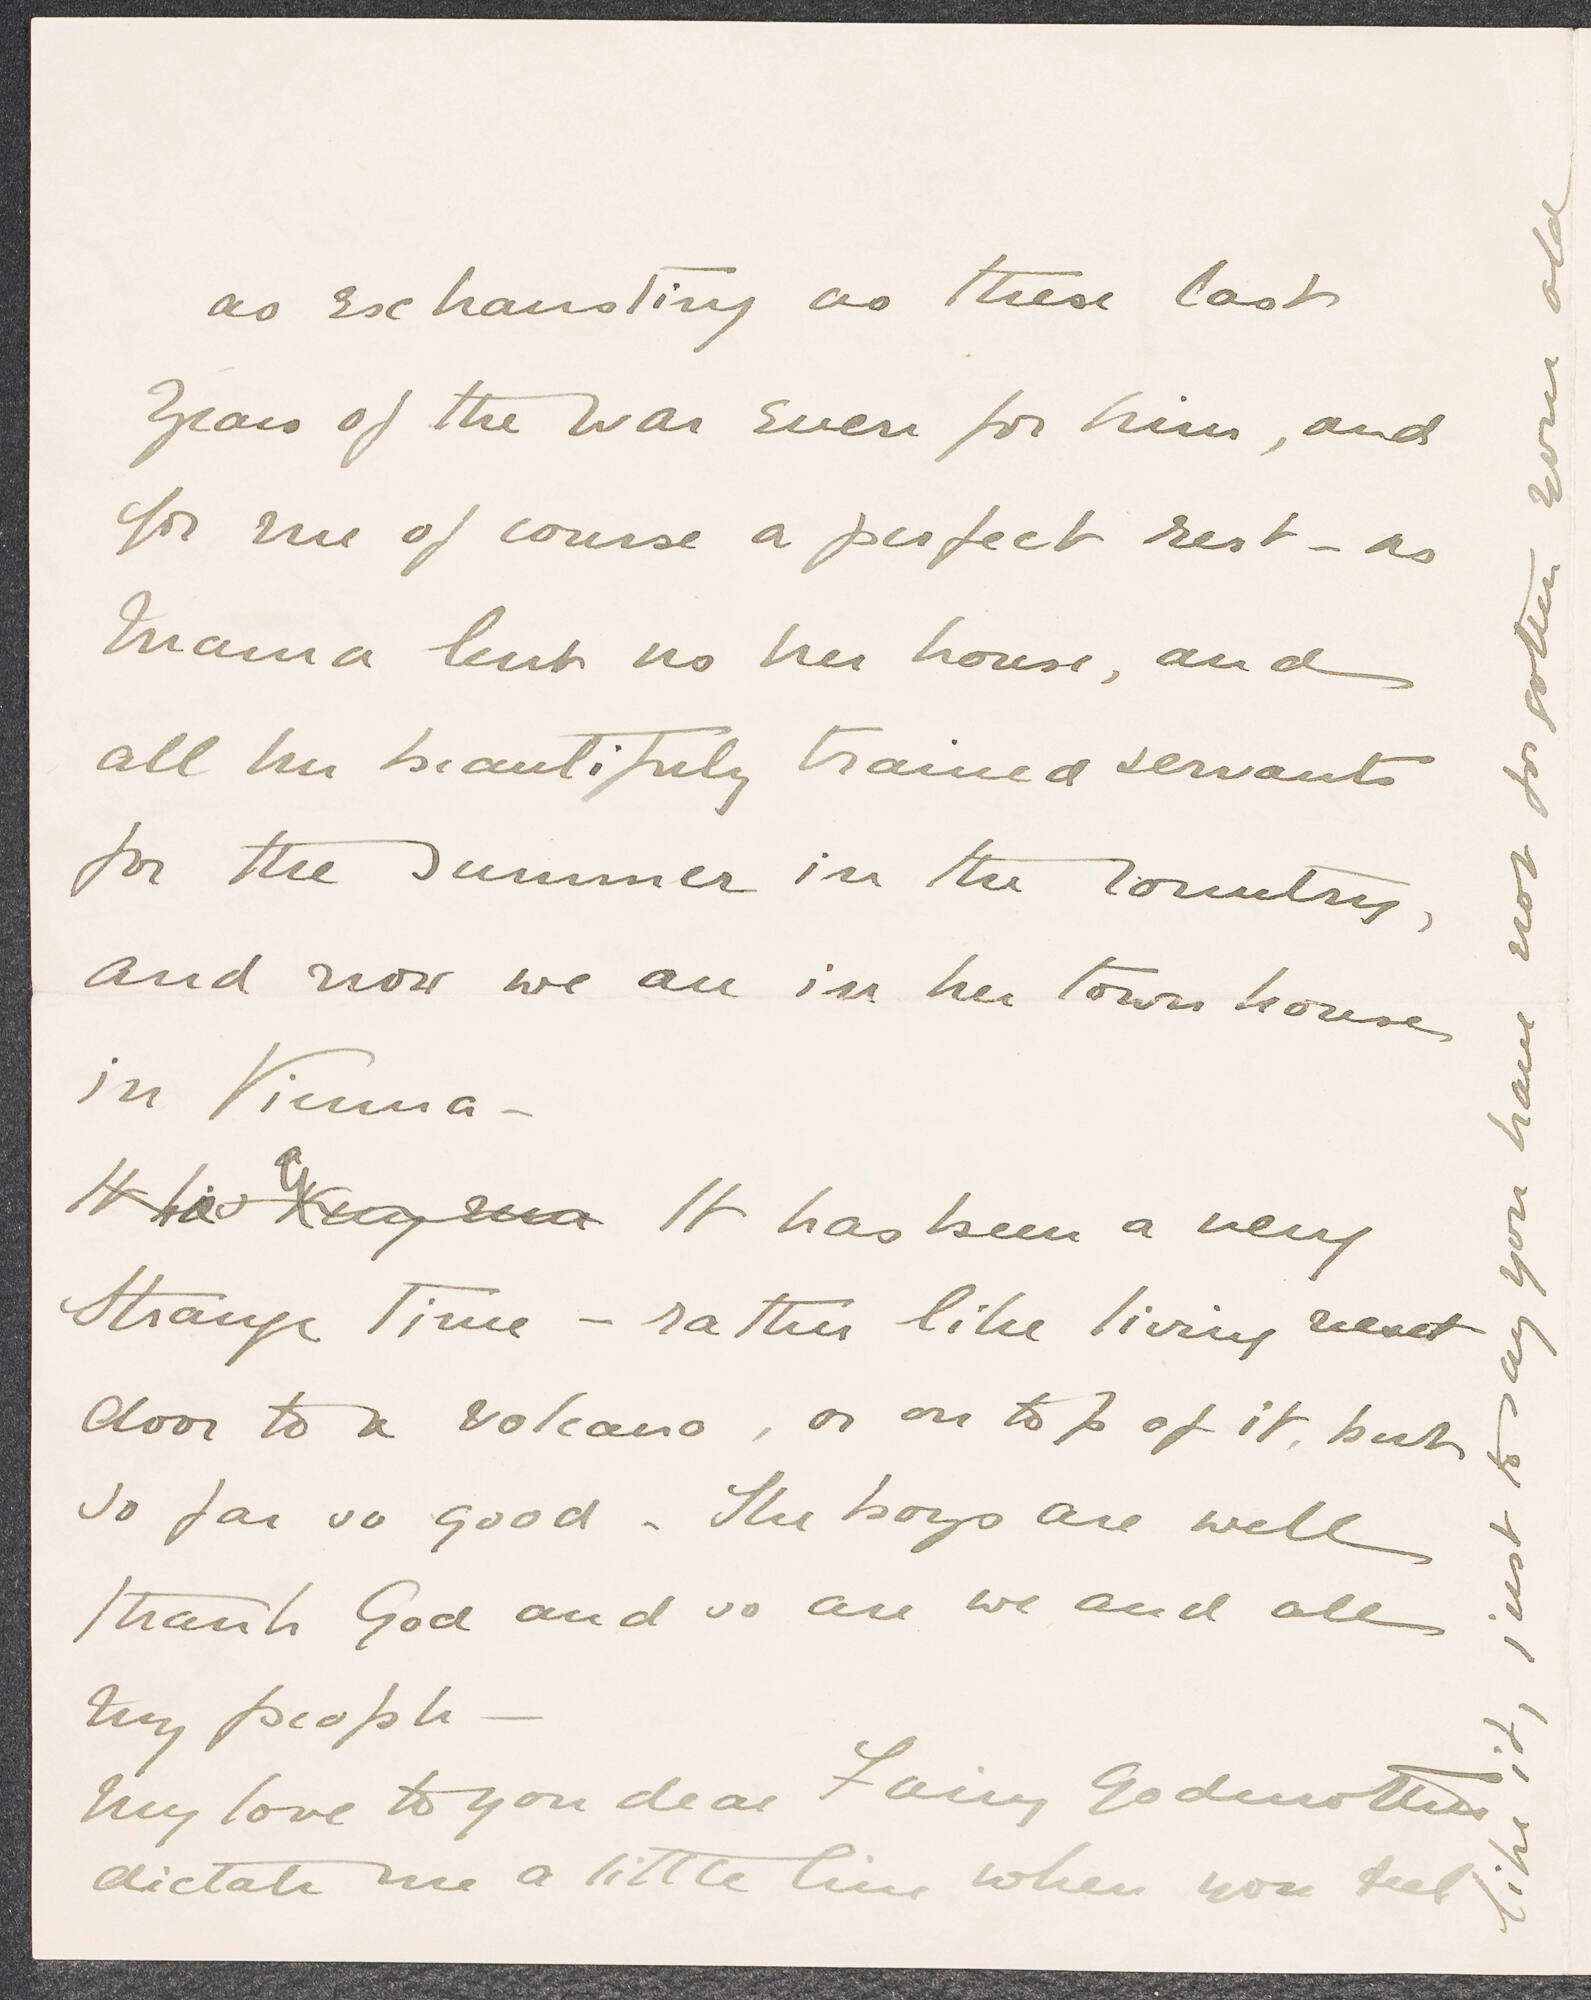 as exhausting as these last
Years of the War even for him, and
for me of course a perfect rest - as
Mama lent us her house, and
all her beautifuly trained servants
for the Summer in the Country,
and now we are in her town house
in Vienna -
It has been a very
Strange Time - rather like living next
door to a volcano, or on top of it, but
so far so good - The boys are well
thank God and so are we and all
my people -
My love to you dear Fairy Godmother
dictate me a little line when you feel
like it, just to say you have not forgotten your old